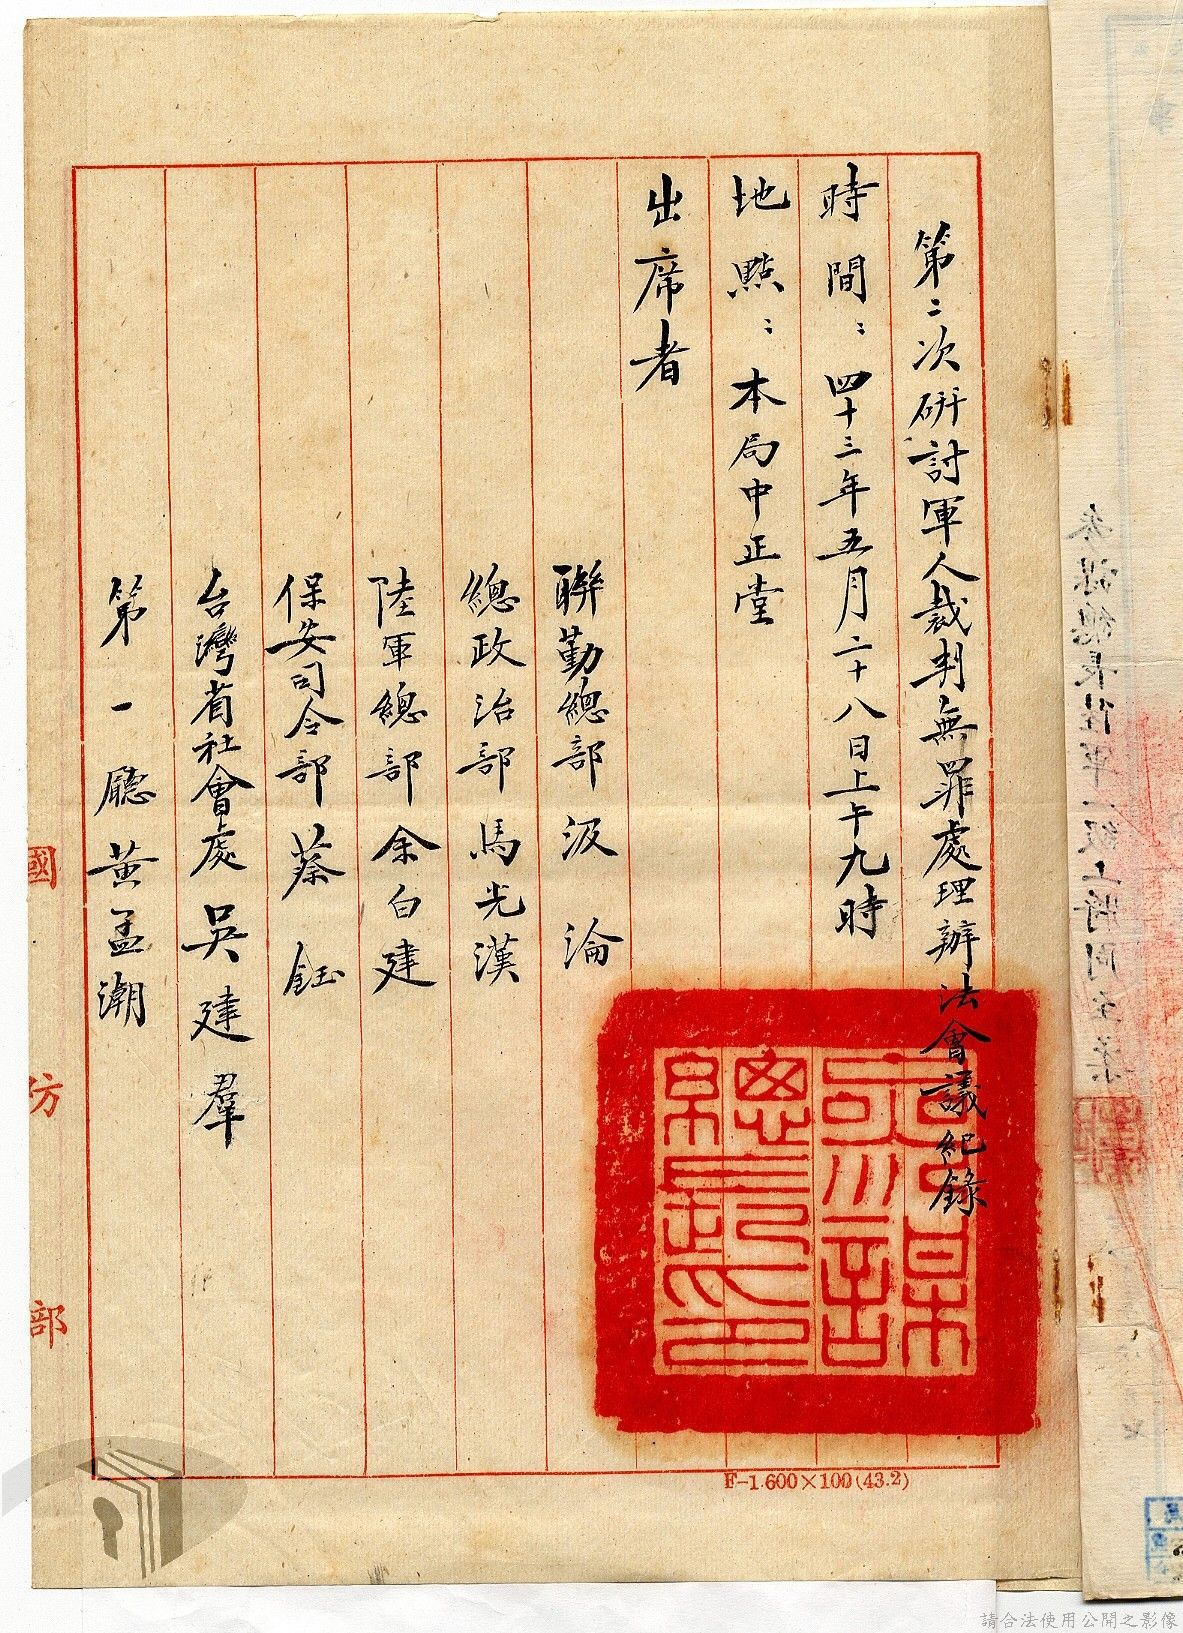 第二次研討軍人裁判無罪處理辦法會議紀錄
時間：四十三年五月二十八日上午九時
地點：本局中正堂
出席者
聯勤總部 汲 淪
總政治部 馬光漢
陸軍總部 余白建
保安司令部 蔡 鈺
台灣省社會處 吳建羣
第一廳 黃孟潮
國防部
F-1.600×100(43.2)
請合法使用公開之影像